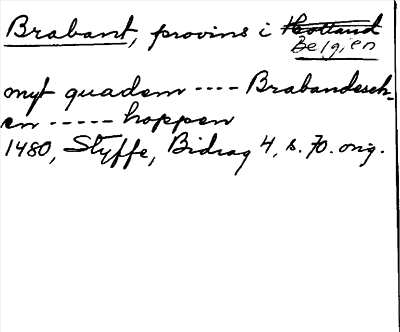 Brabant, provins i Holland
Belgien
myt quadem ---- Brabandesch-
en ----- hoppen
1480, Styffe, Bidrag 4, s. 70. orig.